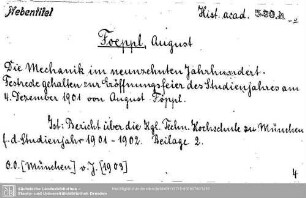 Nebentitel
Hist. acad.
Foeppl, August
Die Mechanik im neunzehnten Jahrhundert.
Festrede gehalten zur Eröffnungsfeier des Studienjahres am
4. Dezember 1901 von August Föppl.
Ist: Bericht über die Kgl. Techn. Hochschule zu München
f. d. Studienjahr 1901 - 1902. Beilage 2.
O.O. [München] o. J. [1903]
4